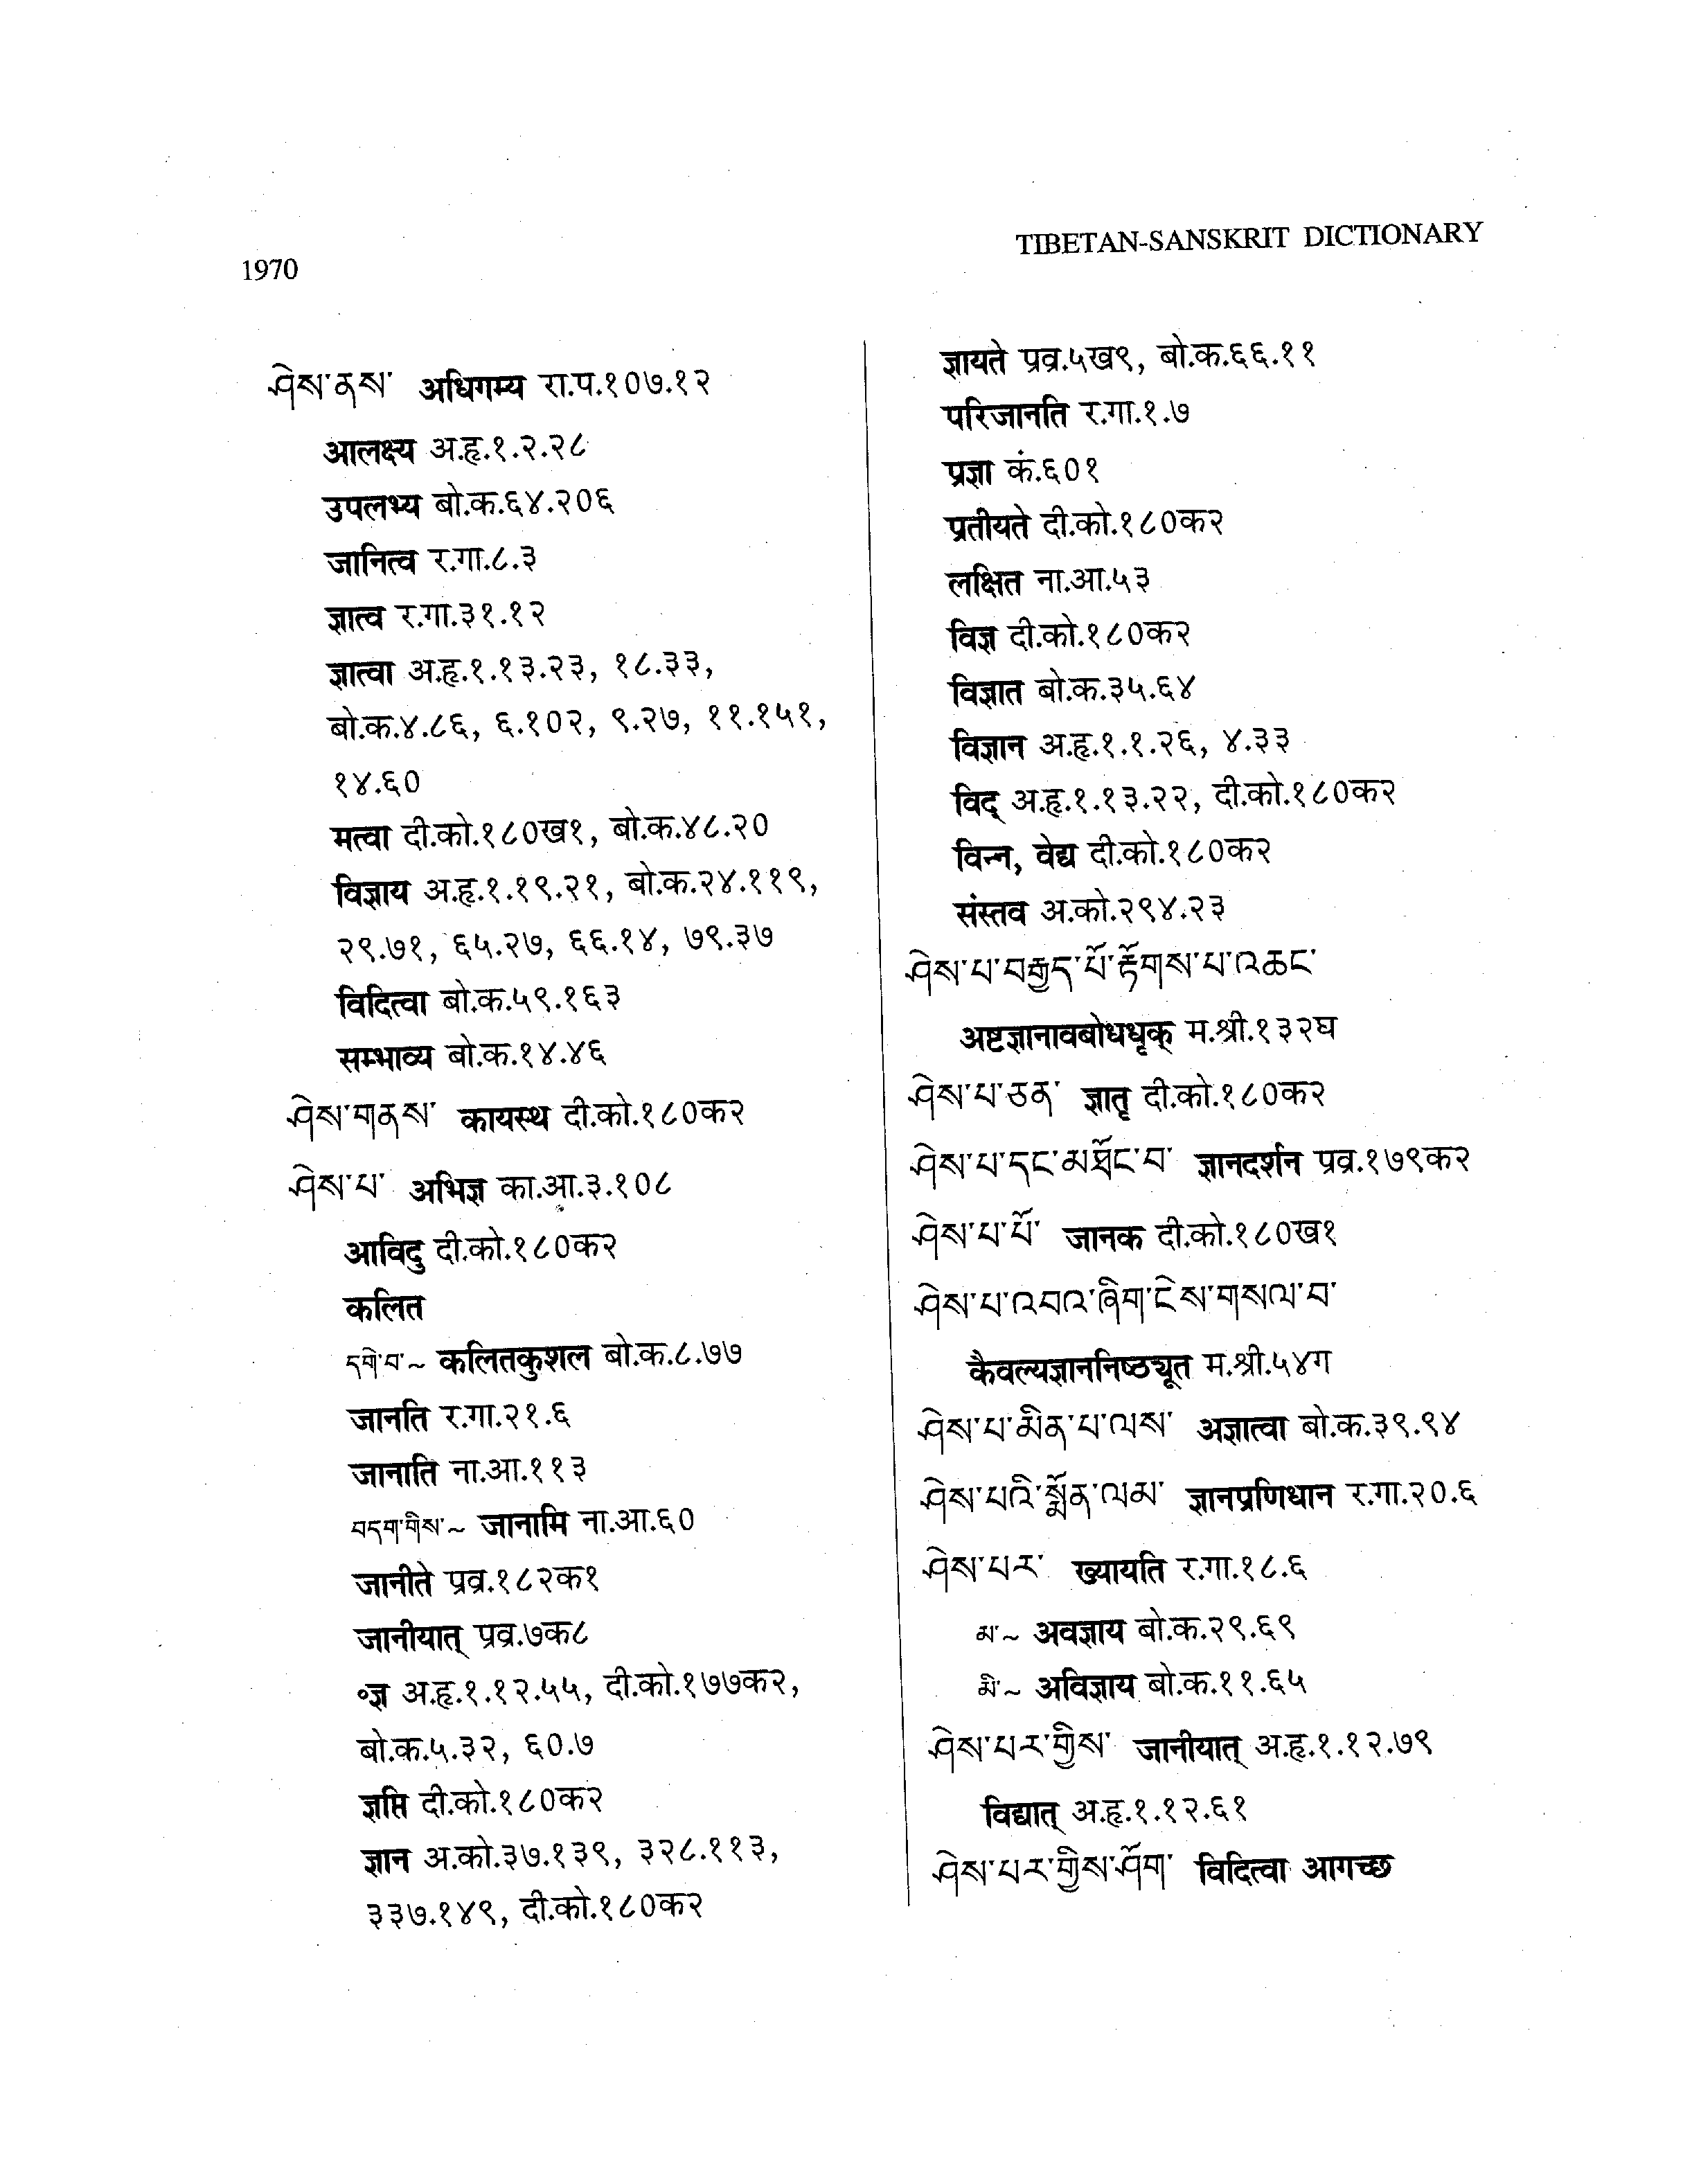 1970
TIBETAN-SANSKRIT DICTIONARY
ཤེས་ནས་ अधिगम्य रा.प.१०७.१२
आलक्ष्य अ.हृ.१.२.२८
उपलभ्य बो.क.६४.२०६
जानित्व र.गा.८.३
ज्ञात्व र.गा.३१.१२
ज्ञात्वा अ.हृ.१.१३.२३, १८.३३,
बो.क.४.८६, ६.१०२, ९.२७, ११.१५१,
१४.६०
मत्वा दी.को.१८०ख१, बो.क.४८.२०
विज्ञाय अ.हृ.१.१९.२१, बो.क.२४.११९,
२९.७१, ६५.२७, ६६.१४, ७९.३७
विदित्वा बो.क.५९.१६३
सम्भाव्य बो.क.१४.४६
ཤེས་གནས་ कायस्थ दी.को.१८०क२
ཤེས་པ་ अभिज्ञ का.आ.३.१०८
आविदु दी.को.१८०क२
कलित
དགེ་བ་~ कलितकुशल बो.क.८.७७
जानति र.गा.२१.६
जानाति ना.आ.११३
བདག་གིས་~ जानामि ना.आ.६०
जानीते प्रव्र.१८२क१
जानीयात् प्रव्र.७क८
॰ज्ञ अ.हृ.१.१२.५५, दी.को.१७७क२,
बो.क.५.३२, ६०.७
ज्ञप्ति दी.को.१८०क२
ज्ञान अ.को.३७.१३९, ३२८.११३,
३३७.१४९, दी.को.१८०क२
ज्ञायते प्रव्र.५ख९, बो.क.६६.११
परिजानति र.गा.१.७
प्रज्ञा कं.६०१
प्रतीयते दी.को.१८०क२
लक्षित ना.आ.५३
विज्ञ दी.को.१८०क२
विज्ञात बो.क.३५.६४
विज्ञान अ.हृ.१.१.२६, ४.३३
विद् अ.हृ.१.१३.२२, दी.को.१८०क२
विन्न, वेद्य दी.को.१८०क२
संस्तव अ.को.२९४.२३
ཤེས་པ་བརྒྱད་པོ་རྟོགས་པ་འཆང་
अष्टज्ञानावबोधधृक् म.श्री.१३२घ
ཤེས་པ་ཅན་ ज्ञातृ दी.को.१८०क२
ཤེས་པ་དང་མཐོང་བ་ ज्ञानदर्शन प्रव्र.१७९क२
ཤེས་པ་པོ་ जानक दी.को.१८०ख१
ཤེས་པ་འབའ་ཞིག་ངེས་གསལ་བ་
कैवल्यज्ञाननिष्ठ्यूत म.श्री.५४ग
ཤེས་པ་མིན་པ་ལས་ अज्ञात्वा बो.क.३९.९४
ཤེས་པའི་སྨོན་ལམ་ ज्ञानप्रणिधान र.गा.२०.६
ཤེས་པར་ ख्यायति र.गा.१८.६
མ་~ अवज्ञाय बो.क.२९.६९
མི་~ अविज्ञाय बो.क.११.६५
ཤེས་པར་གྱིས་ जानीयात् अ.हृ.१.१२.७९
विद्यात् अ.हृ.१.१२.६१
ཤེས་པར་གྱིས་ཤོག་ विदित्वा आगच्छ